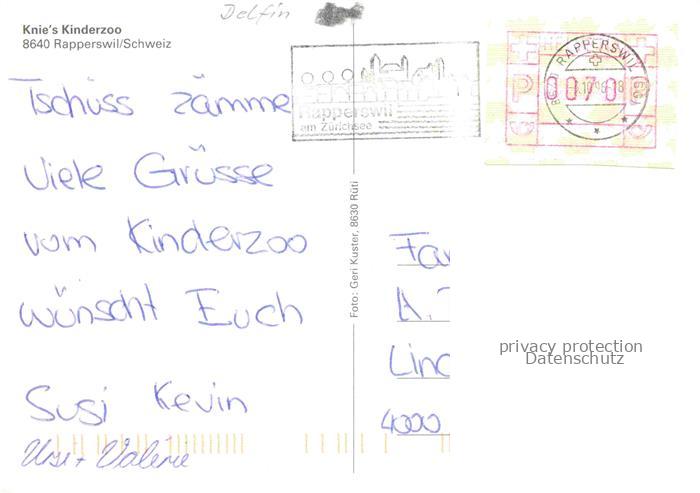 Delfin
Knie's Kinderzoo
8640 Rapperswil/Schweiz
Tschüss zämme
Viele Grüsse
vom Kinderzoo
wünscht Euch
Susi Kevin
Ursi + Valérie
Foto: Geri Kuster, 8630 Rüti
Rapperswil
am Zürichsee
RAPPERSWIL
P 0070
Fa
A.
Lin
4000
privacy protection
Datenschutz